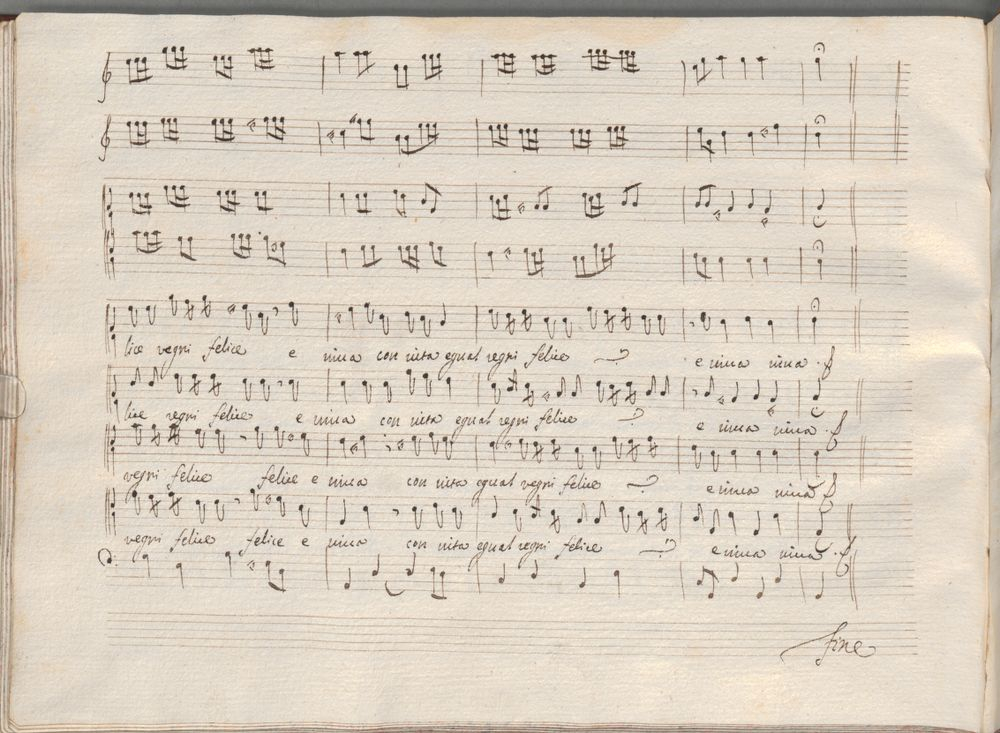 lice regni felice e viva con vita egual regni felice e viva viva
lice regni felice e viva con vita egual regni felice e viva viva
regni felice felice e viva con vita egual regni felice e viva viva
regni felice felice e viva con vita egual regni felice e viva viva
fine